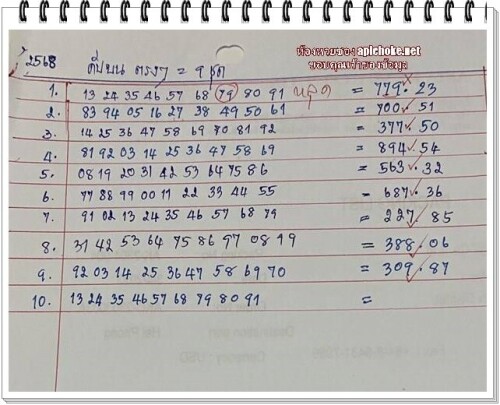 ห้องหวยซอง aplchoke.net
ขอบคุณเจ้าของข้อมูล
2568 คู่บน ตรงๆ = 9 ชุด
1. 13 24 35 46 57 68 79 80 91 หลุด = 779.23
2. 83 94 05 16 27 38 49 50 61 = 700.51
3. 14 25 36 47 58 69 70 81 92 = 377.50
4. 81 92 03 14 25 36 47 58 69 = 894.54
5. 08 19 20 31 42 53 64 75 86 = 563.32
6. 77 88 99 00 11 22 33 44 55 = 687.36
7. 91 02 13 24 35 46 57 68 79 = 227.85
8. 31 42 53 64 75 86 97 08 19 = 388.06
9. 92 03 14 25 36 47 58 69 70 = 309.87
10. 13 24 35 46 57 68 79 80 91 =